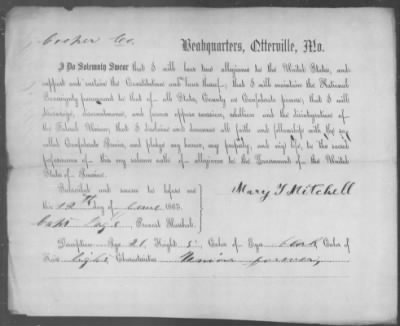 Cooper Co.
Headquarters, Otterville, Mo.
I Do Solemnly Swear that I will bear true allegiance to the United States, and
support and sustain the Constitution and laws thereof; that I will maintain the National
Sovereignty paramount to that of all State, County or Confederate powers; that I will
discourage, discountenance, and forever oppose secession, rebellion and the disintegration of
the Federal Union; that I disclaim and denounce all faith and fellowship with the so
called Confederate Armies, and pledge my honor, my property, and my life, to the sacred
performance of this my solemn oath of allegiance to the Government of the United
States of America.
Subscribed and sworn to before me
this 12th day of June 1863.
Provost Marshal.
Mary T Mitchell
Description---Age 21, Height 5' Color of Eyes Dark, Color of
Hair light Characteristics